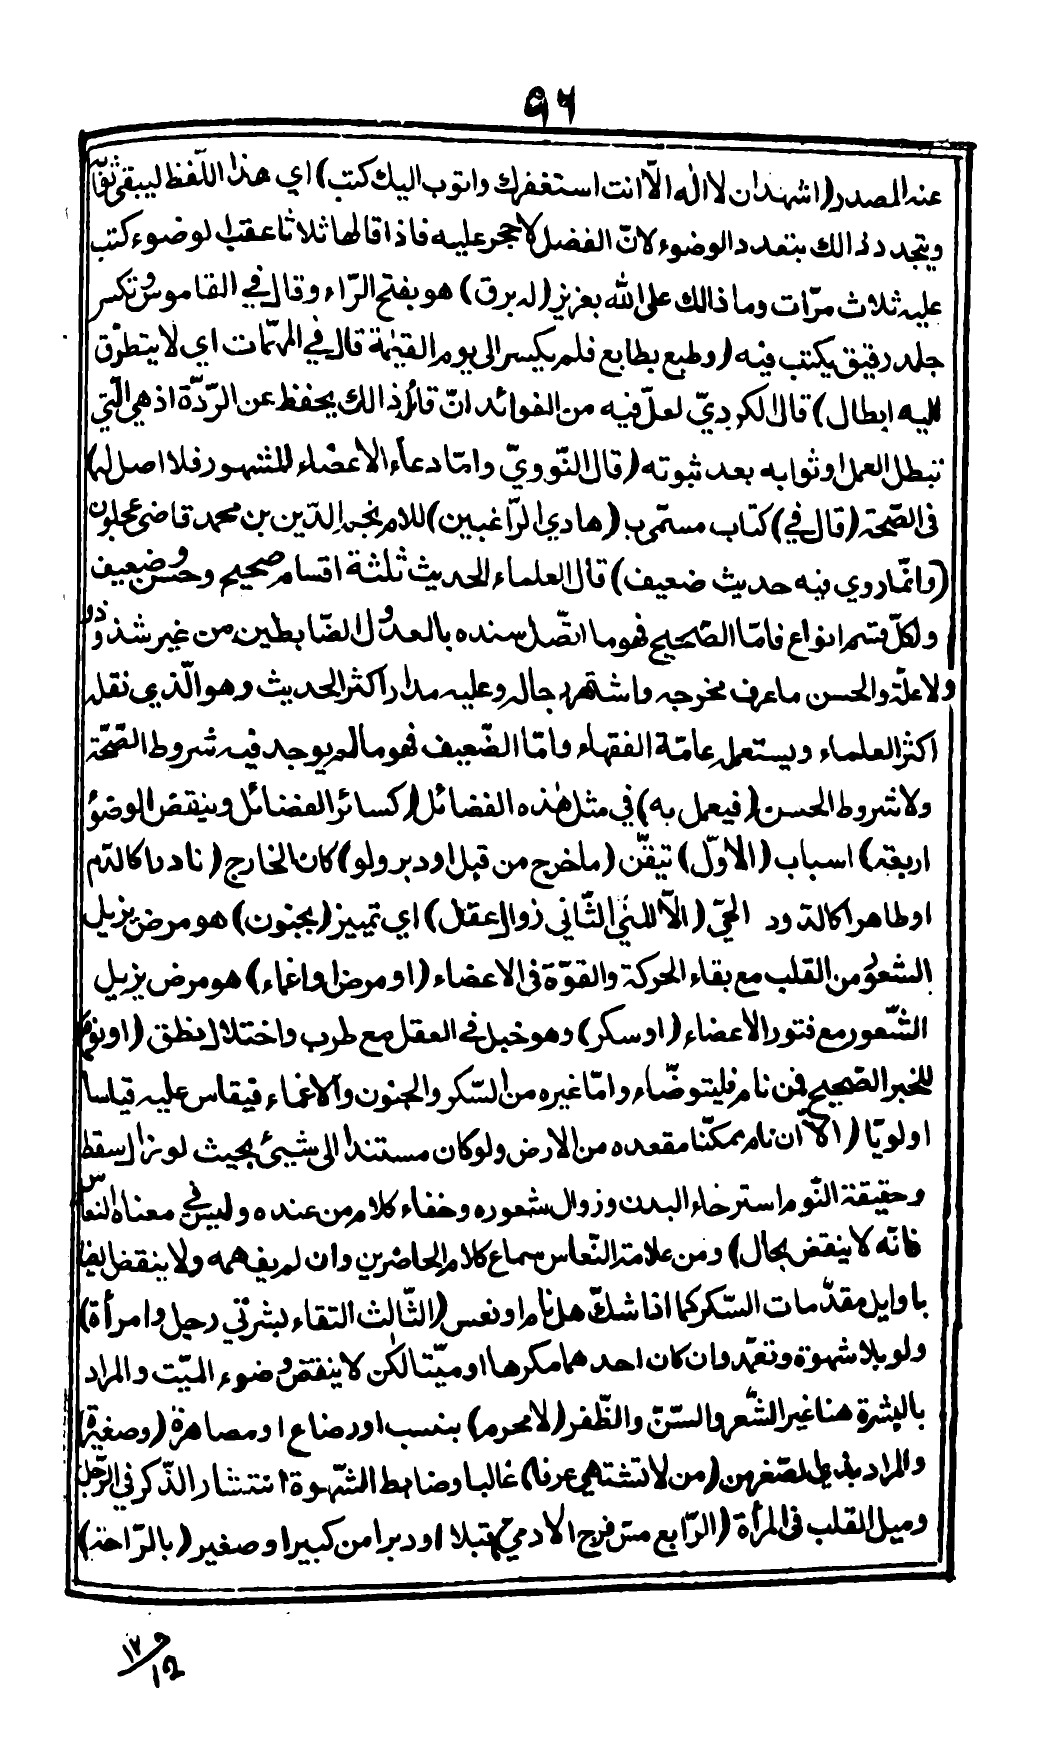 ٩٦
عنه المصدر (اشهد ان لا اله الّا انت استغفرك واتوب اليك كتب) اي هذا اللّفظ ليبقى ثوابه
ويتجدد ذالك بتعدد الوضوء لانّ الفضل لا حجر عليه فاذا قالها ثلاثا عقب الوضوء كتب
عليه ثلاث مرّات وما ذالك على الله بعزيز (له برق) هو بفتح الرّاء وقال في القاموس وتكسر
جلد رقيق يكتب فيه (وطبع بطابع فلم يكسر الى يوم القيٰمة قال في المهمّات اي لا يتطرّق
اليه ابطال) قال الكرديّ لعلّ فيه من الفوائد انّ قائل ذالك يحفظ عن الرّدّة اذ هي الّتي
تبطل العمل او ثوابه بعد ثبوته (قال النّوويّ وامّا دعاء الاعضاء المشهور فلا اصل له)
فى الصّحّة (قال في) كتاب مسمّى ب (هادي الرّاغبين) للامام نجم الدّين بن محمد قاضى عجلون
(وانّما روي فيه حديث ضعيف) قال العلماء الحديث ثلثة اقسام صحيح وحسن وضعيف
ولكلّ قسم انواع فامّا الصّحيح فهو ما اتّصل سنده بالعدول الضّابطين من غير شذوذ
ولا علّة والحسن ما عرف مخرجه واشتهر رجاله وعليه مدار اكثر الحديث وهو الّذي نقله
اكثر العلماء ويستعمله عامّة الفقهاء وامّا الضّعيف فهو ما لم يوجد فيه شروط الصّحّة
ولا شروط الحسن (فيعمل به) في مثل هٰذه الفضائل (كسائر الفضائل وينقض الوضوء
اربعة) اسباب (الاوّل) تيقّن (ما خرج من قبل او دبر ولو) كان الخارج (نادرا كالدّم
او طاهرا كالدّود الحيّ (الّا المنيّ الثّاني زوال عقل) اي تمييز (بجنون) هو مرض يزيل
الشعور من القلب مع بقاء الحركة والقوّة فى الاعضاء (او مرض او اغماء) هو مرض يزيل
الشّعور مع فتور الاعضاء (او سكر) وهو خبل في العقل مع طرب واختلال نطق (او نوم)
للخبر الصّحيح فمن نام فليتوضّاء وامّا غيره من السّكر والجنون والاغماء فيقاس عليه قياسا
اولويّا (الّا ان نام ممكّنا مقعده من الارض ولو كان مستندا الى شيئ بحيث لو زال سقط
وحقيقة النّوم استرخاء البدن وزوال شعوره وخفاء كلام من عنده وليس في معناه النّعاس
فانّه لا ينقض بحال) ومن علامة النّعاس سماع كلام الحاضرين وان لم يفهمه ولا ينقض ايضا
باوايل مقدّمات السّكر كما اذا شكّ هل نام او نعس (الثّالث التقاء بشرتي رجل وامرأة)
ولو بلا شهوة وتعمّد وان كان احدهما مكرها او ميّتا لٰكن لا ينقض وضوء الميّت والمراد
بالبشرة هنا غير الشّعر والسّنّ والظّفر (لا محرم) بنسب او رضاع او مصاهرة (وصغيرة)
والمراد بذي الصّغر من (من لا تشتهي عرفا) غالبا وضابط الشّهوة انتشار الذّكر في الرّجل
وميل القلب فى المرأة (الرّابع مسّ فرج الادميّ) قبلا او دبرا من كبير او صغير (بالرّاحة)
١٢